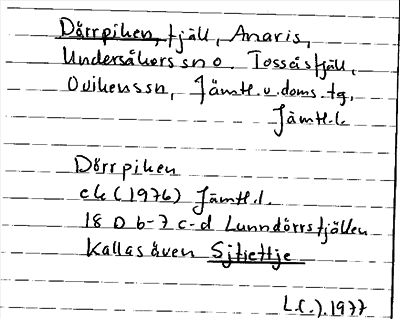 Dörrpiken, fjäll, Anaris,
Undersåkers sn o. Tossåsfjäll,
Ovikens sn, Jämtl. v. doms. tg,
Jämtl. l.
Dörrpiken
ek (1976) Jämtl. l.
18 D 6-7 c-d Lunndörrsfjällen
Kallas även Sjtiettje
L.C.). 1977